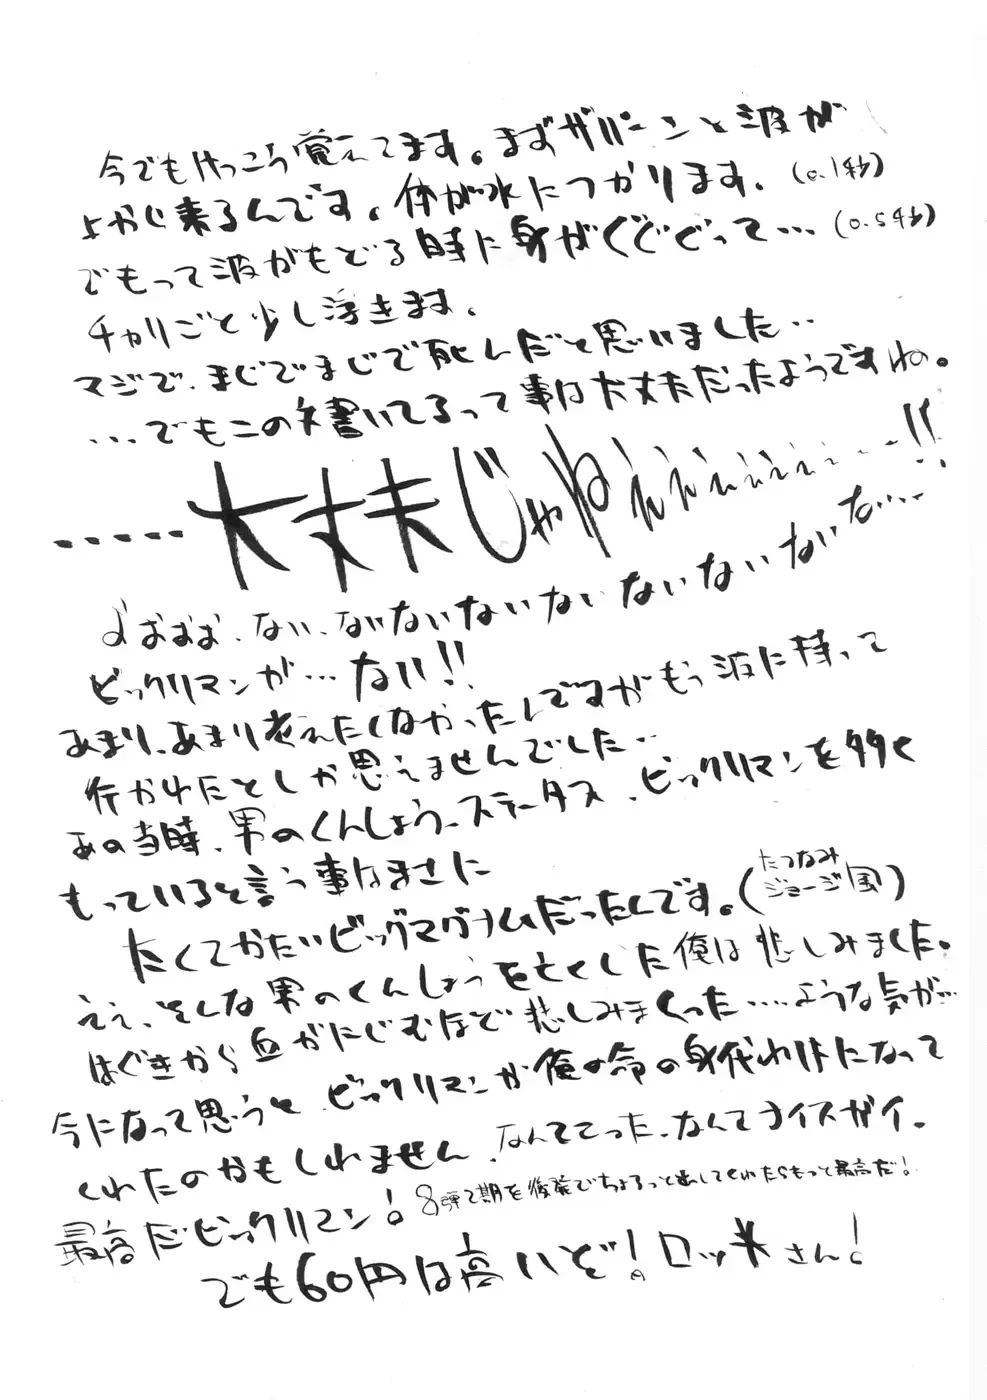 今でもけっこう覚えてます。まずザパーンと波が
よかじ来るんです。体が水につかります。(0.1秒)
でもって波がもどる時に身がぐぐぐって…(0.5秒)
チャリごと少し浮きます。
マジで、まじでまじで死んだと思いました‥
…でもこの文書いてるって事は大丈夫だったようですね。
‥‥‥大丈夫じゃねぇぇぇぇぇぇぇ…!!
おおお、ない、ないないないないないないないない…
ビックリマンが…ない!!
あまり、あまり考えたくなかったんですがもう波に持って
行かれたとしか思えませんでした‥
あの当時、男のくんしょう、ステータス、ビックリマンを多く
もっていると言う事はまさに
たくてかたいビッグマグナムだったんです。(たつなみジョージ風)
ええ、そんな男のくんしょうを亡くした俺は悲しみました。
はぐきから血がにじむほど悲しみまくった…ような気が…
今になって思うと、ビックリマンが俺の命の身代わりになって
くれたのかもしれません、なんててった、なんてナイスガイ。
最高だビックリマン!8弾2期を後発でちょろっと出してくれたらもっと最高だ!
でも60円は高いぞ!ロッ*さん!